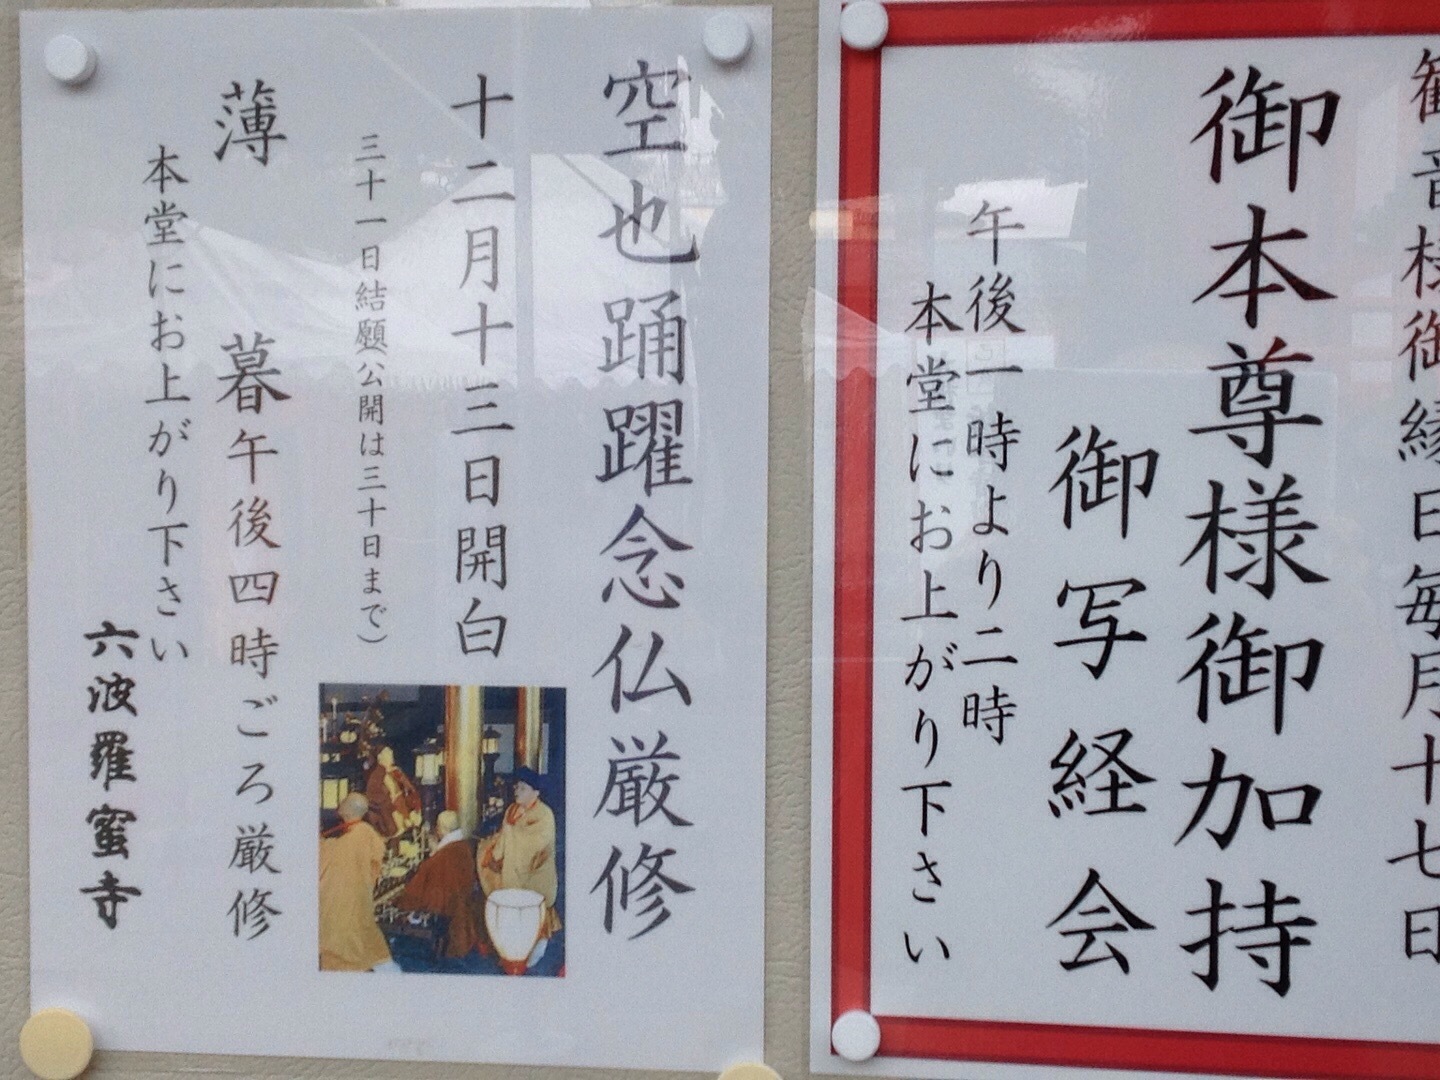 観音様御縁日毎月十七日
御本尊様御加持
御写経会
午後一時より二時
本堂にお上がり下さい
空也踊躍念仏厳修
十二月十三日開白
三十一日結願(公開は三十日まで)
薄暮午後四時ごろ厳修
本堂にお上がり下さい
六波羅蜜寺